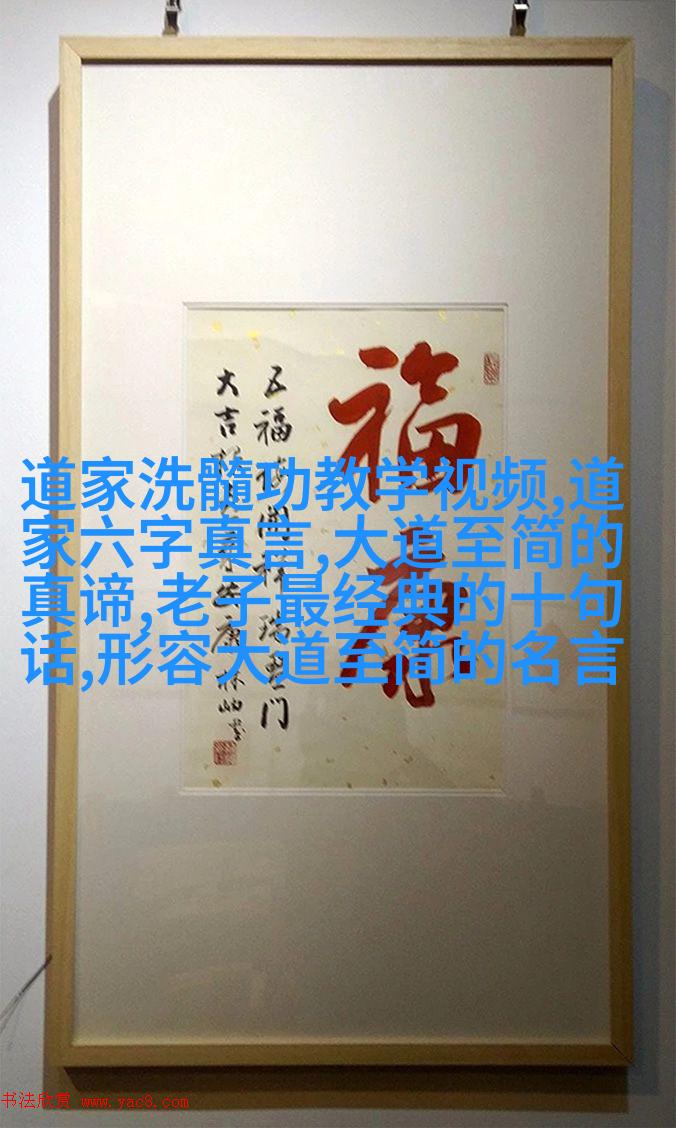 道家洗髓功教学视频,道
家六字真言,大道至简的
真谛,老子最经典的十句
话,形容大道至简的名言
福
五福 開 瑞 门
大吉 康 林岫
书法欣赏 www.yac8.com